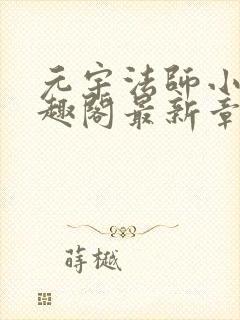 元宇法師小
趣閣最新章
蒔樾